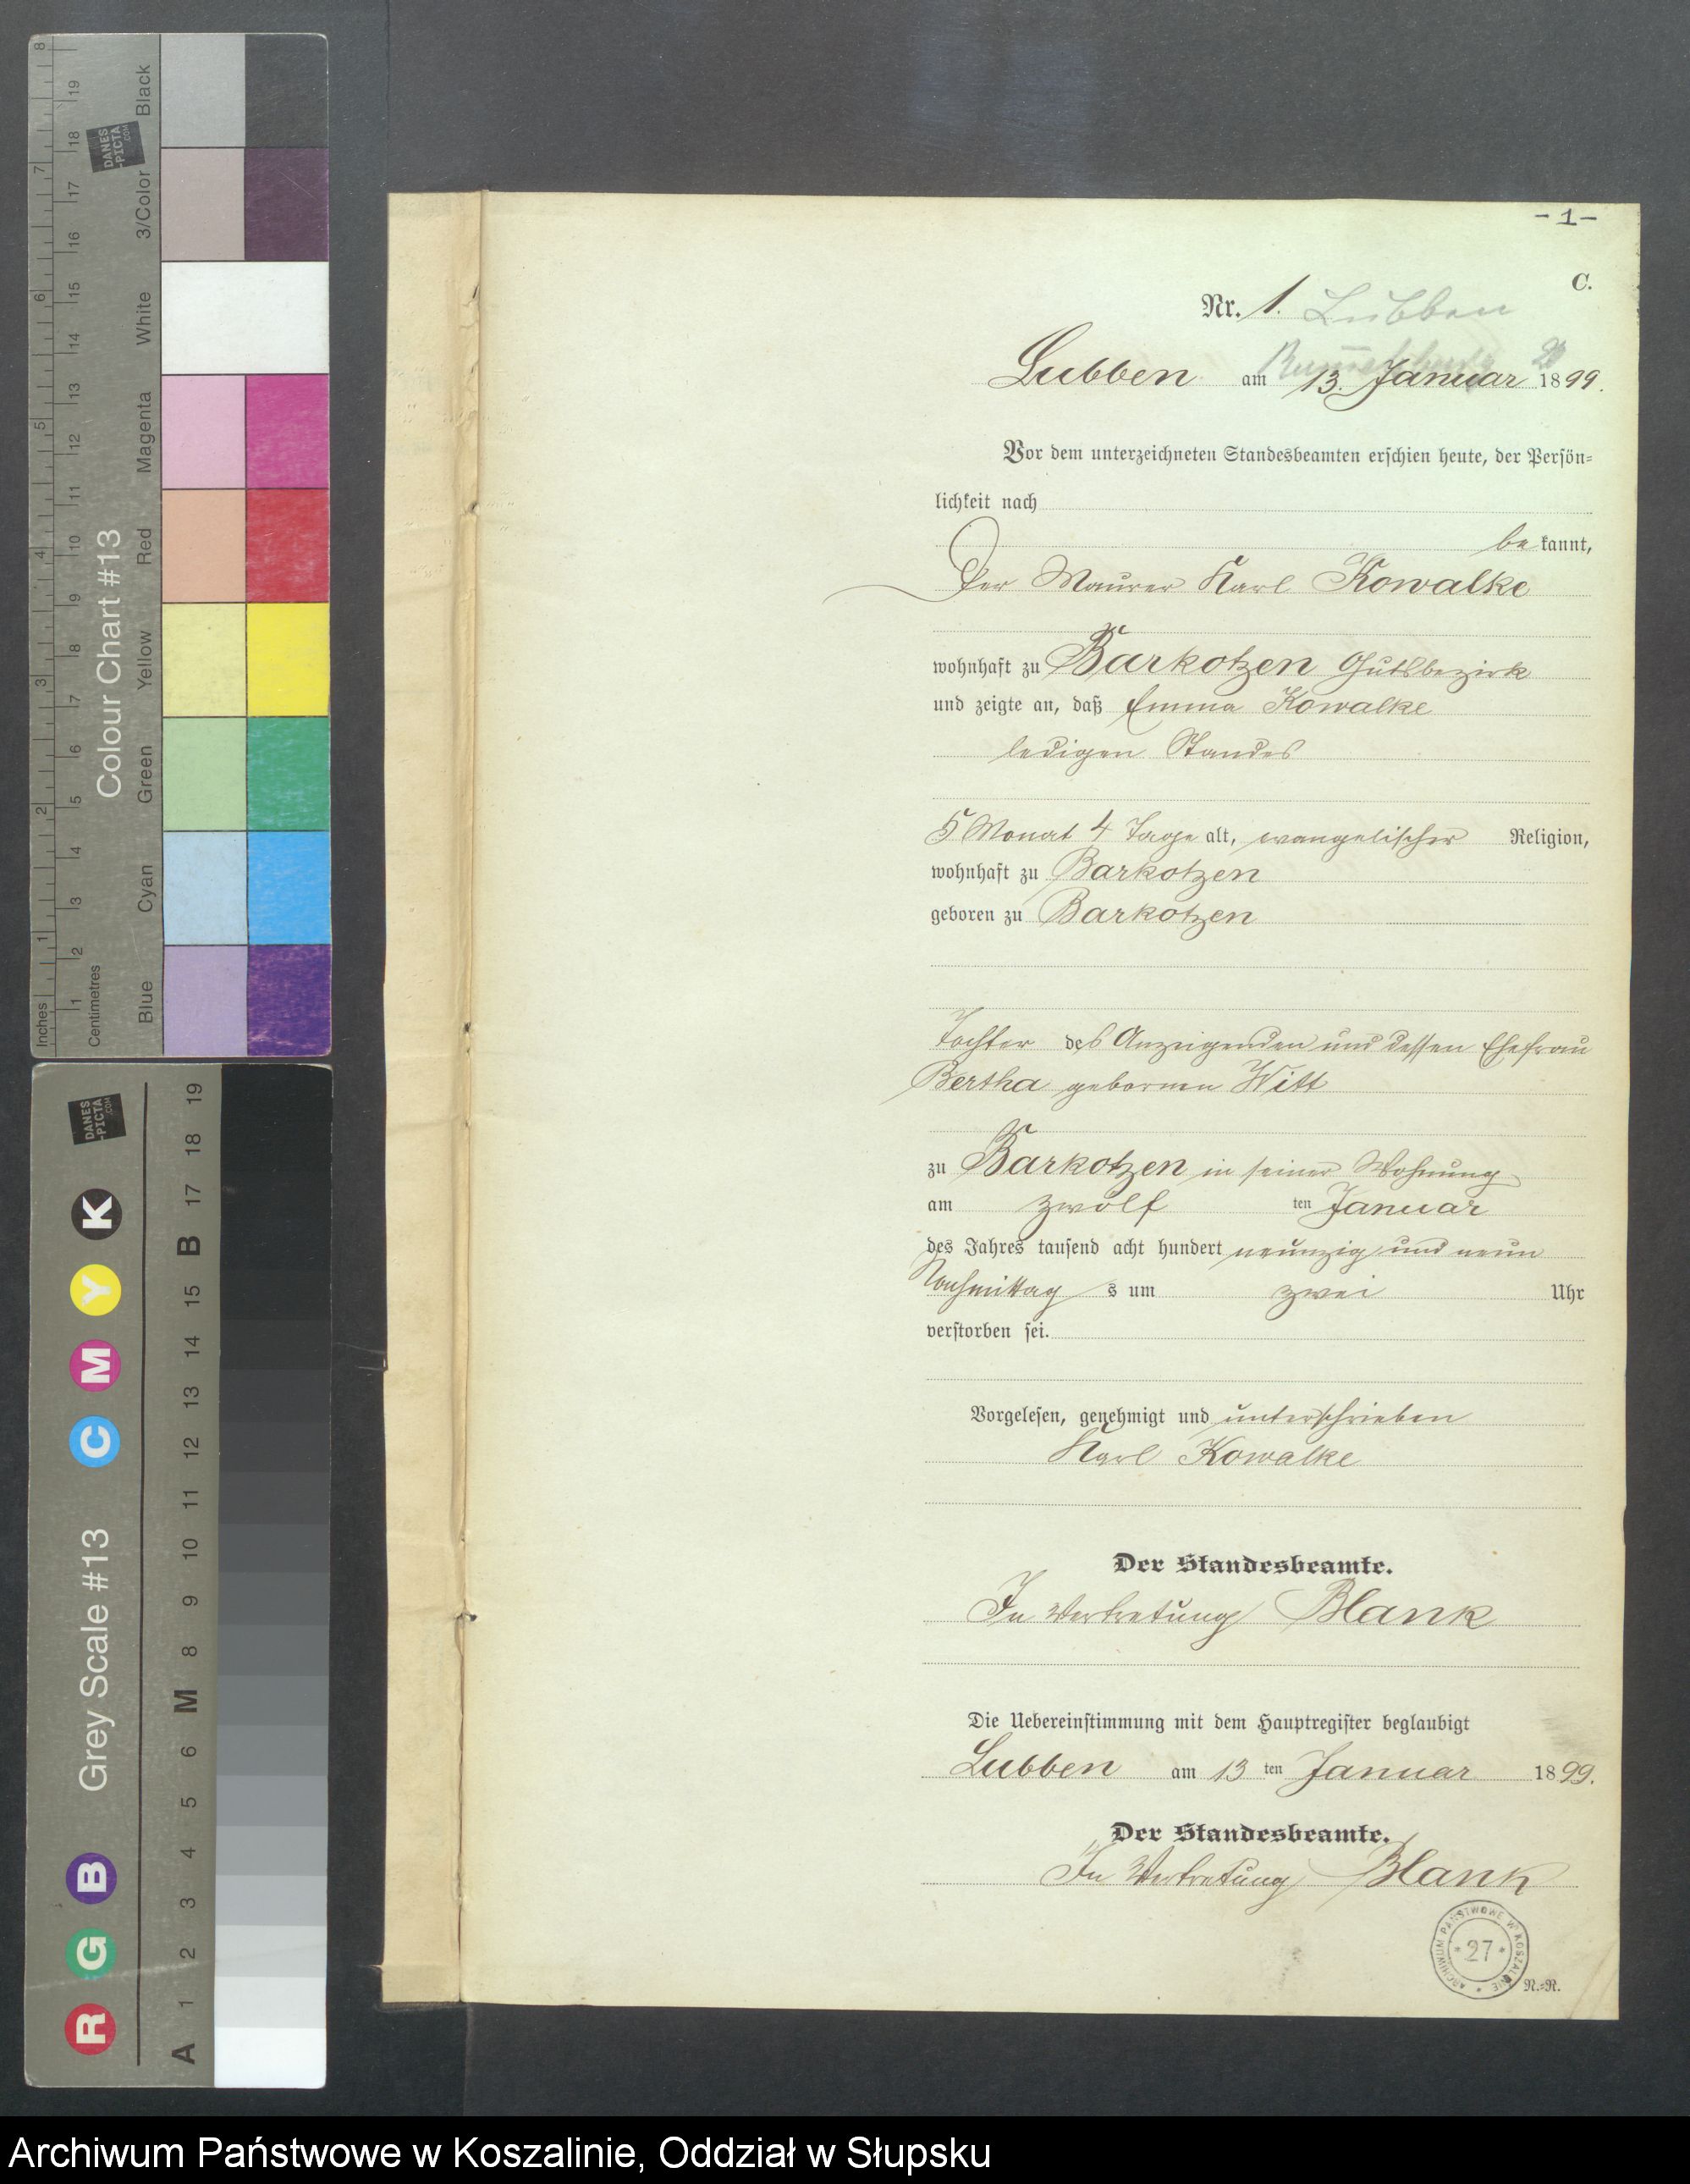 -1-
C.
Nr. 1. Lubben
Lubben am 13. Januar 1899.
Vor dem unterzeichneten Standesbeamten erschien heute, der Persön=
lichkeit nach
be kannt,
Der Maurer Karl Kowalke
wohnhaft zu Barkotzen Gutsbezirk
und zeigte an, daß Emma Kowalke
ledigen Standes
5 Monat 4 Tage alt, evangelischer Religion,
wohnhaft zu Barkotzen
geboren zu Barkotzen
Tochter des Anzeigenden und dessen Ehefrau
Bertha gebornen Witt
zu Barkotzen in seiner Wohnung
am zwölf ten Januar
des Jahres tausend acht hundert neunzig und neun
Nachmittag s um zwei Uhr
verstorben sei.
Vorgelesen, genehmigt und unterschrieben
Karl Kowalke
Der Standesbeamte.
In Vertretung Blank
Die Uebereinstimmung mit dem Hauptregister beglaubigt
Lubben am 13 ten Januar 1899.
Der Standesbeamte.
In Vertretung Blank
ARCHIWUM PAŃSTWOWE W KOSZALINIE
* 27 *
N.=R.
Inches
1 2 3 4 5 6 7 8
Centimetres
1 2 3 4 5 6 7 8 9 10 11 12 13 14 15 16 17 18 19
Colour Chart #13
Blue Cyan Green Yellow Red Magenta White 3/Color Black
DANES
-PICTA
.COM
Grey Scale #13
R G B C M Y K
A 1 2 3 4 5 6 M 8 9 10 11 12 13 14 15 B 17 18 19
DANES
-PICTA
.COM
Archiwum Państwowe w Koszalinie, Oddział w Słupsku